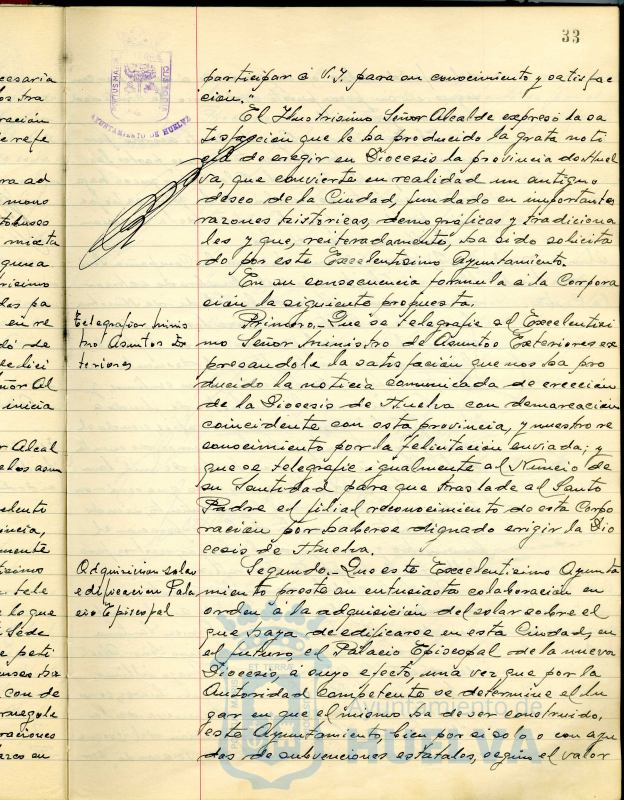 33
participar á V.I. para su conocimiento y satisfac
ción."
El Ilustrisimo Señor Alcalde expresó la sa
tisfacción que le ha producido la grata noti
cia de eregir en Diocesis la provincia de Huel
va, que convierte en realidad un antiguo
deseo de la Ciudad, fundado en importantes
razones historicas, demográficas y tradiciona
les y que, reiteradamente, ha sido solicita
do por este Excelentisimo Ayuntamiento.
En su consecuencia formula á la Corpora
ción la siguiente propuesta.
Telegrafiar Minis
tro Asuntos Ex
teriores
Primero.- Que se telegrafie al Excelentisi
mo Señor Ministro de Asuntos Exteriores ex
presandole la satisfación que nos ha pro
ducido la noticia comunicada de erección
de la Diocesis de Huelva con demarcación
coincidente con esta provincia, y nuestro re
conocimiento por la felicitación enviada; y
que se telegrafie igualmente al Nuncio de
su Santidad para que traslade al Santo
Padre el filial reconocimiento de esta Corpo
ración por haberse dignado erigir la Dio
cesis de Huelva.
Adquisición solar
edificación Pala
cio Episcopal
Segundo.- Que este Excelentisimo Ayunta
miento preste su entusiasta colaboración en
orden á la adquisición del solar sobre el
que haya de edificarse en esta Ciudad, en
el futuro el Palacio Episcopal de la nueva
Diocesis, á cuyo efecto, una vez que por la
Autoridad competente se determine el lu
gar en que el mismo ha de ser construido,
este Ayuntamiento, bien por si solo o con ayu
das de subvenciones estatales, según el valor
AYUNTAMIENTO DE HUELVA
Ayuntamiento de
HUELVA